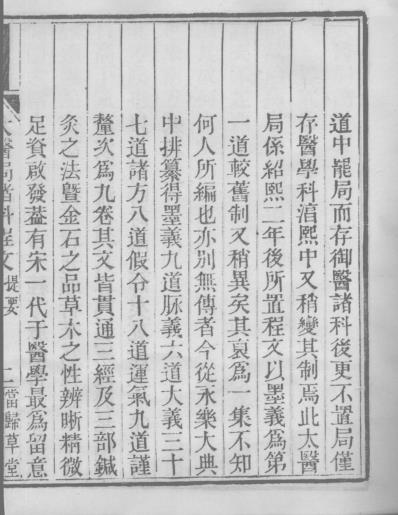 道中罷局而存御醫諸科後更不置局僅
存醫學科淯熙中又稍變其制焉此太醫
局係紹熙二年後所置程文以墨義爲第
一道較舊制又稍異矣其裒爲一集不知
何人所編也亦別無傳者今從永樂大典
中排纂得墨義九道脉義六道大義三十
七道諸方八道假令十八道運氣九道謹
釐次爲九卷其文皆貫通三經及三部鍼
灸之法暨金石之品草木之性辨晰精微
足資啟發葢有宋一代于醫學最爲留意
太醫局諸科程文 提要 二當歸草堂